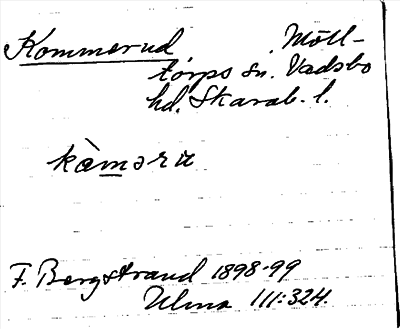 Kommerud Möll-
torps sn. Vadsbo
hd. Skarab. l.
kàməru
F. Bergstrand 1898-99
Ulma 111:324.